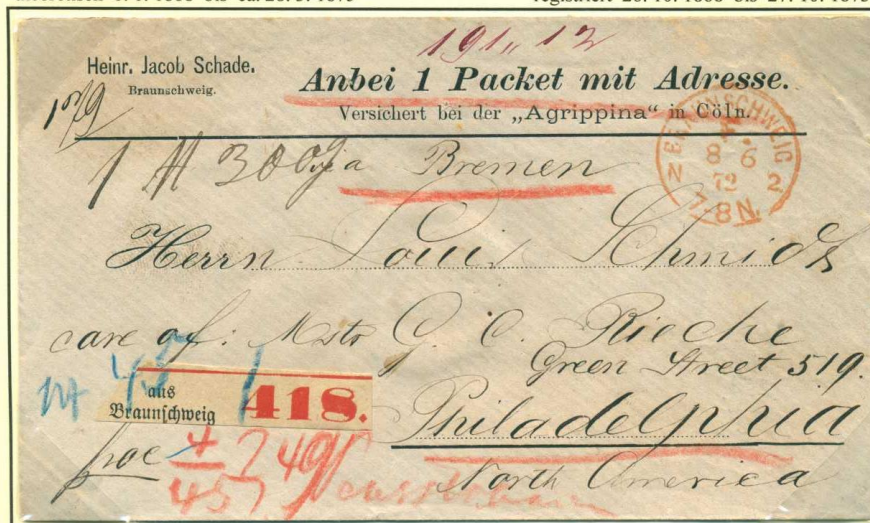 registriert 20. 10. 1868 bis 27. 10. 1875
191,, 12
Heinr. Jacob Schade.
Braunschweig.
Anbei 1 Packet mit Adresse.
Versichert bei der „Agrippina“ in Cöln.
BRAUNSCHWEIG
8 6
72
N 2
7-8 N.
1 300
via Bremen
Herrn Louis Schmidt
care of: Mstr G. C. Rieche
Green Street 519.
aus
Braunschweig
418.
Philadelphia
North America